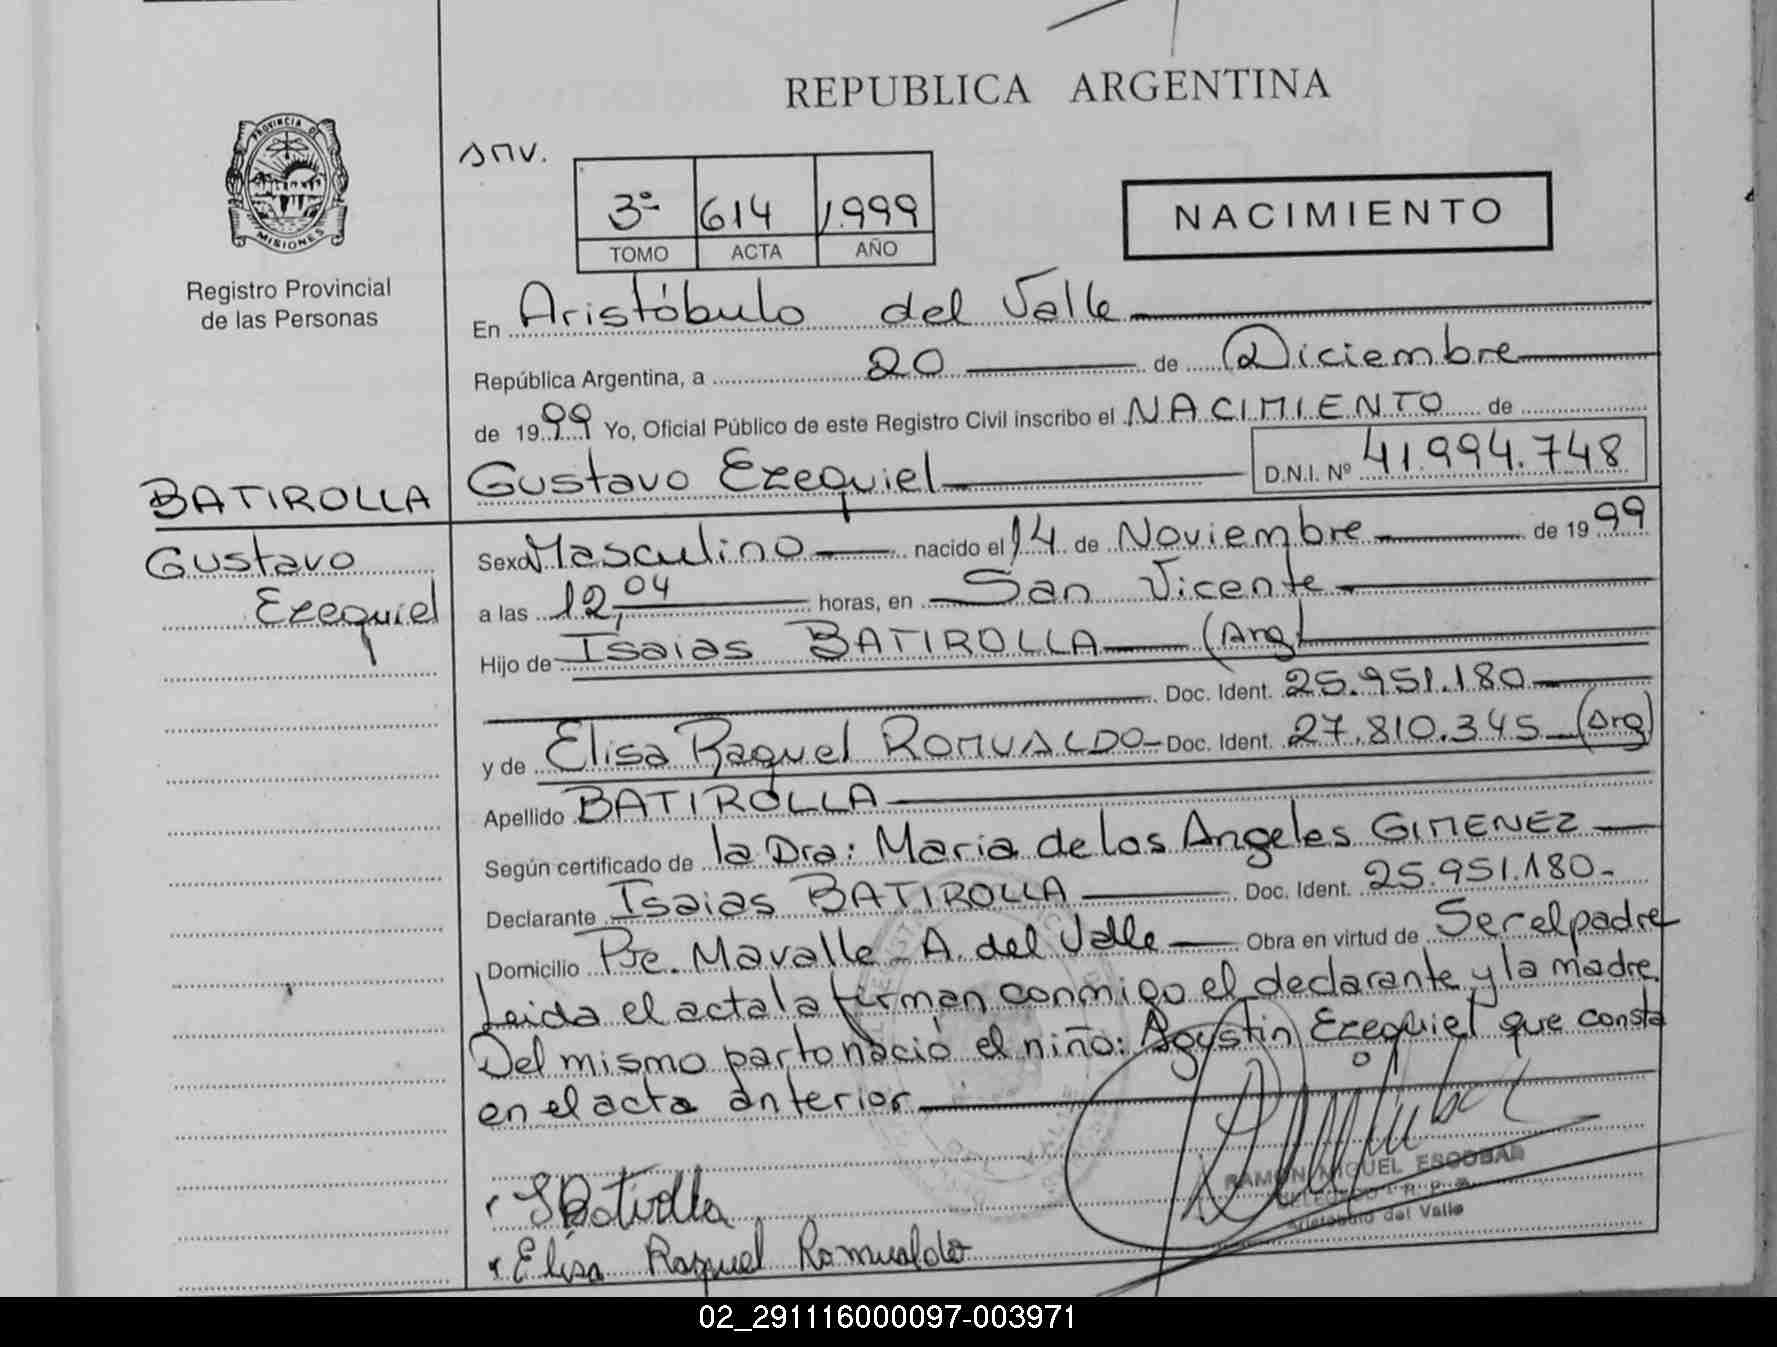 REPUBLICA ARGENTINA
PROVINCIA DE
MISIONES
Registro Provincial
de las Personas
snv.
3º 614 1.999
TOMO ACTA AÑO
NACIMIENTO
En Aristóbulo del Valle
República Argentina, a 20 de Diciembre
de 1999 Yo, Oficial Público de este Registro Civil inscribo el NACIMIENTO de
Gustavo Ezequiel D.N.I. Nº 41.994.748
BATIROLLA
Gustavo
Ezequiel
Sexo Masculino nacido el 14 de Noviembre de 1999
a las 12,04 horas, en San Vicente
Hijo de Isaias BATIROLLA (Arg)
Doc. Ident. 25.951.180
y de Elisa Raquel ROMUALDO Doc. Ident. 27.810.345 (Arg)
Apellido BATIROLLA
Según certificado de la Dra: Maria de los Angeles GIMENEZ
Declarante Isaias BATIROLLA Doc. Ident. 25.951.180-
Domicilio Pje. Mavalle - A. del Valle Obra en virtud de Ser el padre
Leida el acta la firman conmigo el declarante y la madre.
Del mismo parto nació el niño: Agustin Ezequiel que consta
en el acta anterior
Batirolla
RAMON MIQUEL ESCOBAR
DELEGADO - R. P. P.
Aristobulo del Valle
Elisa Raquel Romualdo
02_291116000097-003971